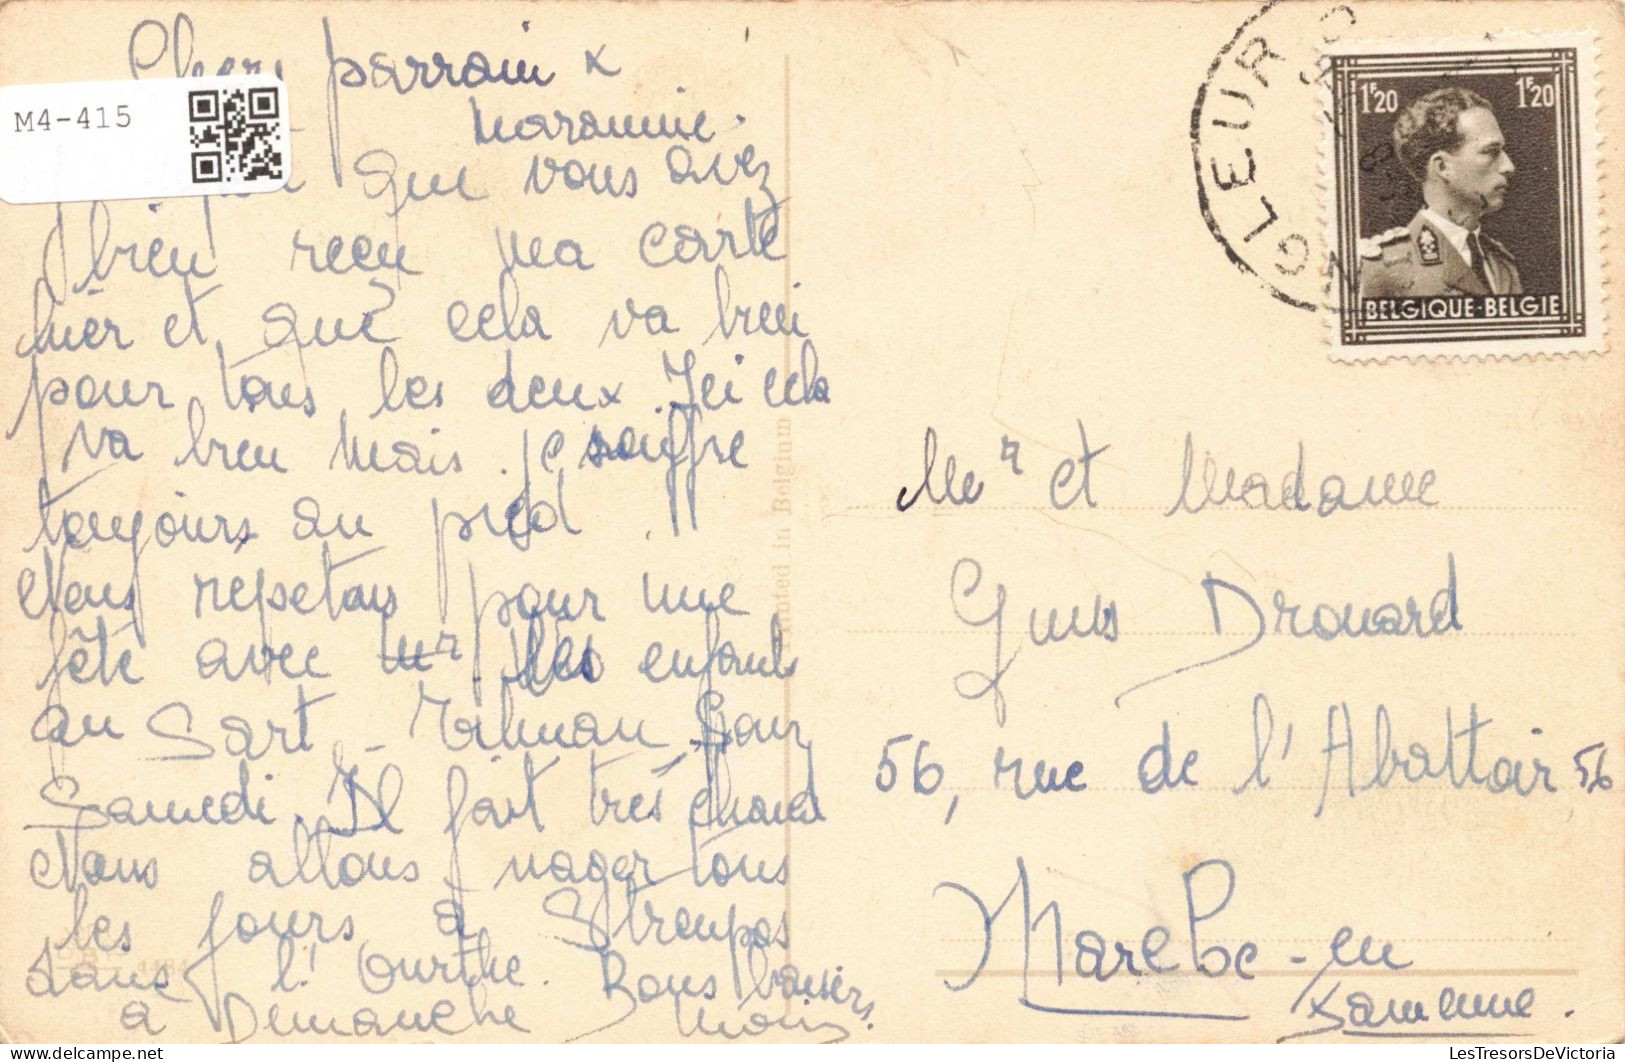 Chers parrain x
Maramie.
que vous avez
bien reçu ma carte
hièr et que cela va bien
pour tous les deux. Ici cela
va bien mais je souffre
toujours au pied.
Nous repetons pour une
fête avec les enfants
au Sart-Tilman pour
Samedi. Il fait très chaud
Nous allons nager tous
les jours à Streupas
dans l'Ourthe. Bons baisers
à Dimanche
M4-415
Printed in Belgium
NGLEUR
1F20 1F20
BELGIQUE-BELGIE
Mr et Madame
Drouard
56, rue de l'Abattoir 56
Marche-en
Famenne.
LesTresorsDeVictoria
delcampe.net